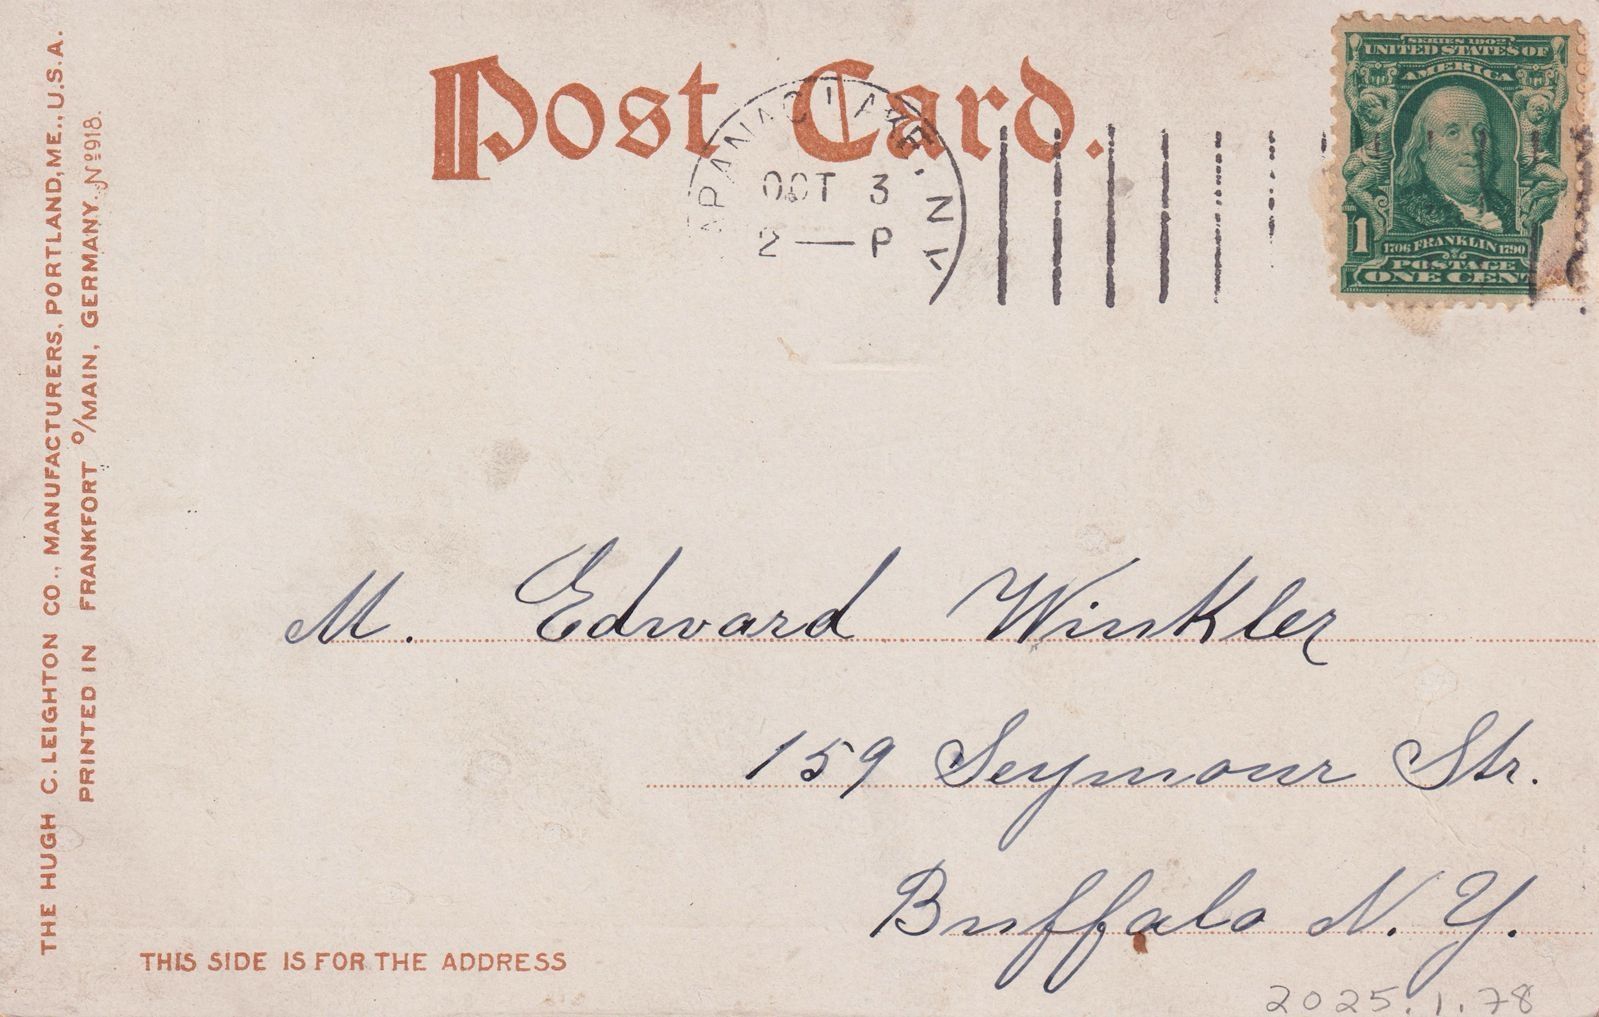 Post Card.
SERIES 1902
UNITED STATES OF
AMERICA
1
1706 FRANKLIN 1790
POSTAGE
ONE CENT
LAKE, N.Y.
OCT 3
2 — P
M. Edward Winkler
159 Seymour Str.
Buffalo N. Y.
THIS SIDE IS FOR THE ADDRESS
THE HUGH C. LEIGHTON CO., MANUFACTURERS, PORTLAND, ME., U.S.A.
PRINTED IN FRANKFORT o/MAIN, GERMANY. No 918.
2025.1.78